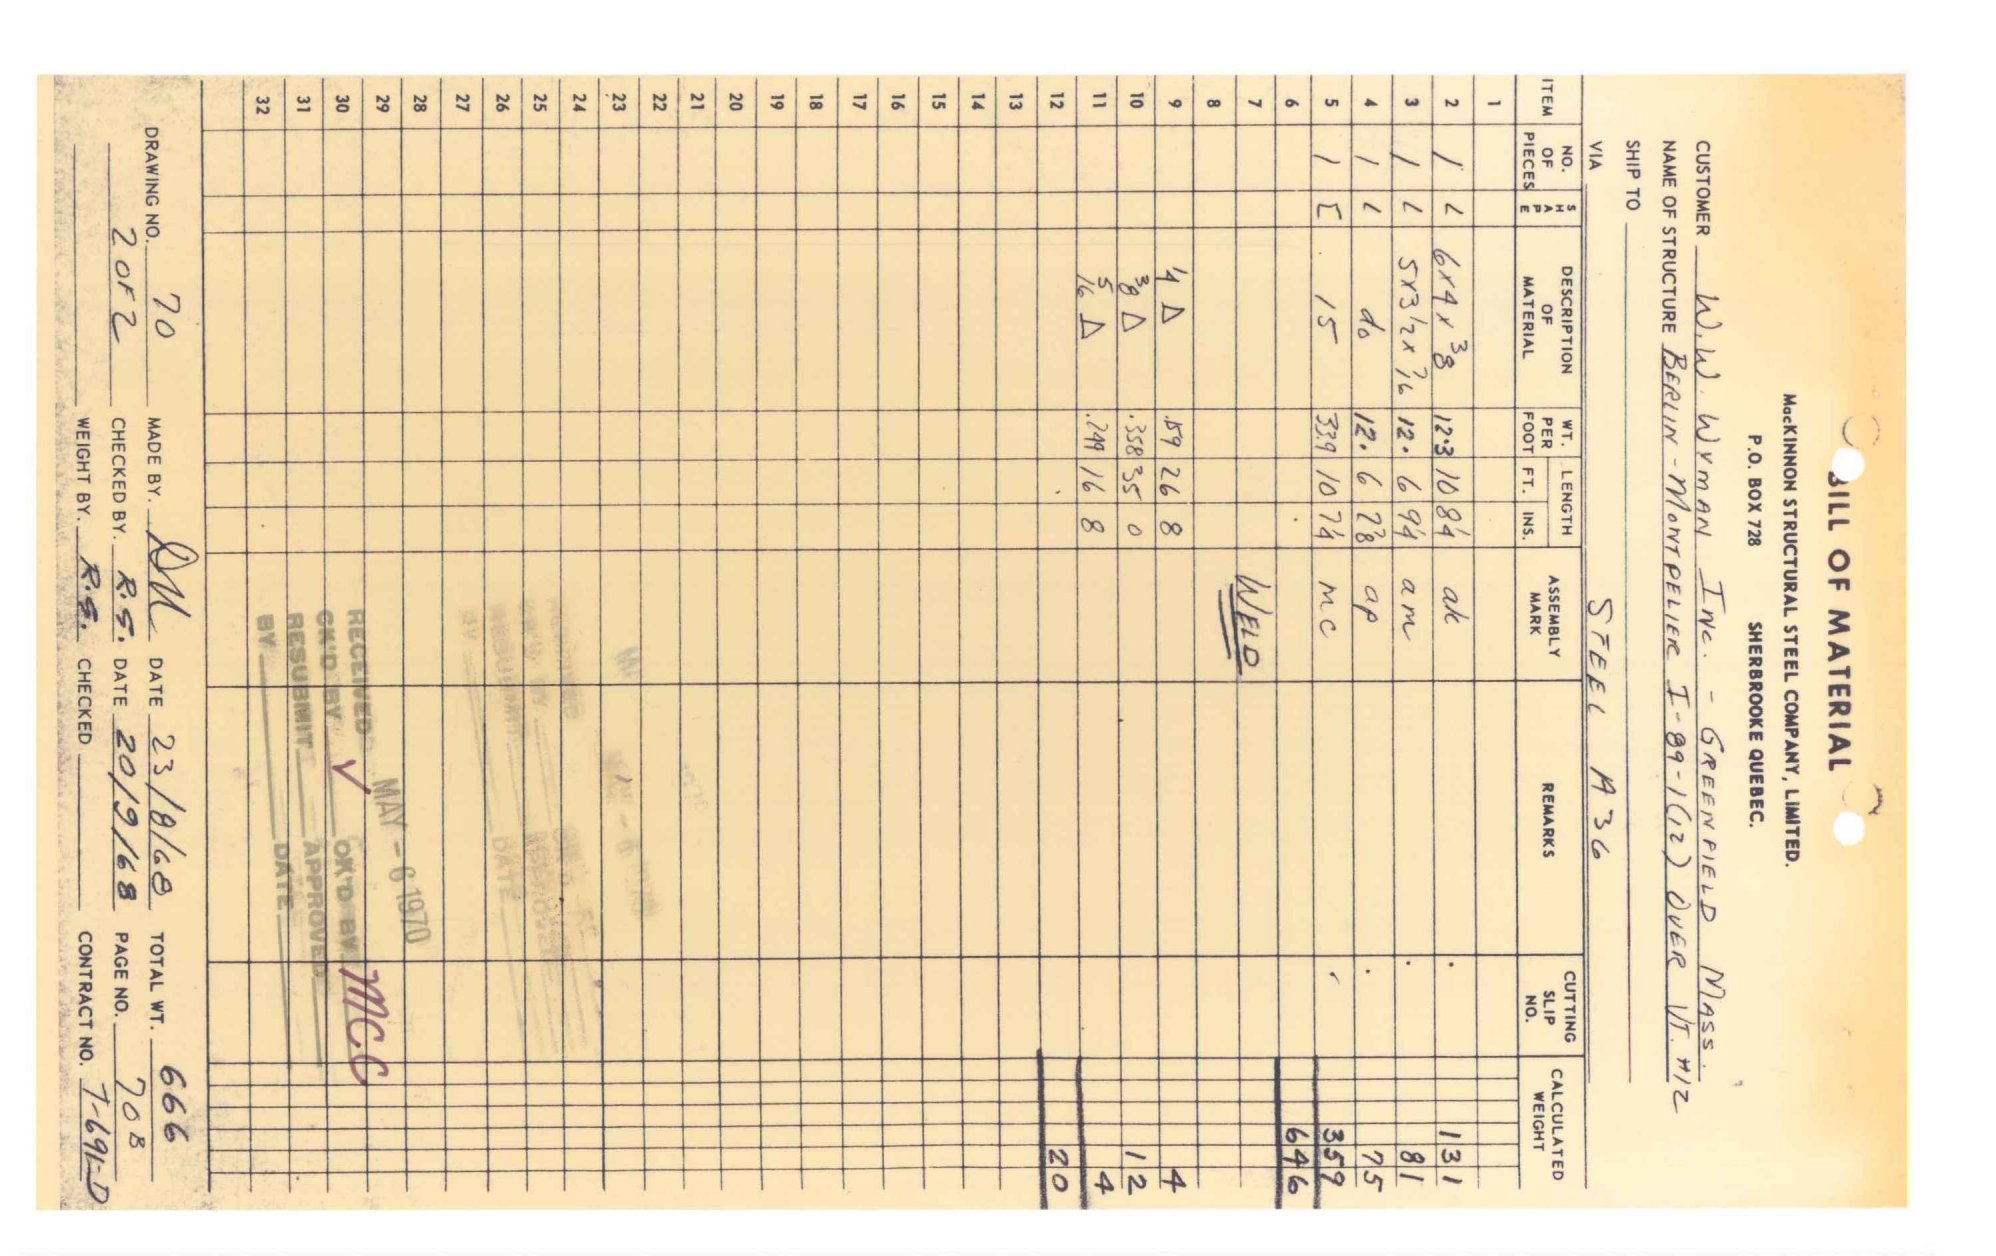 BILL OF MATERIAL
MacKINNON STRUCTURAL STEEL COMPANY, LIMITED.
P.O. BOX 728 SHERBROOKE QUEBEC.
CUSTOMER W.W. WYMAN INC. - GREENFIELD MASS.
NAME OF STRUCTURE BERLIN - MONTPELIER I-89-1(12) OVER VT. #12
SHIP TO
VIA STEEL A36
ITEM NO. OF PIECES SHAPE DESCRIPTION OF MATERIAL WT. PER FOOT LENGTH FT. INS. ASSEMBLY MARK REMARKS CUTTING SLIP NO. CALCULATED WEIGHT
1
2 1 L 6x4x3/8 12.3 10 8 1/4 ak 131
3 1 L 5x3 1/2x7/16 12. 6 9 1/4 am 81
4 1 L do 12. 6 2 7/8 ap 75
5 1 [ 15 33.9 10 7 1/4 mc 359
6 646
7 WELD
8
9 1/4 △ .159 26 8 4
10 3/8 △ .358 35 0 12
11 5/16 △ .249 16 8 4
12 20
13
14
15
16
17
18
19
20
21
22
23
24
25
26
27
28
29
30
31
32
MAY - 6 1970
RECEIVED
CK'D BY ✓ OK'D BY MCC
RESUBMIT APPROVED
BY DATE
DRAWING NO. 70 MADE BY. DATE 23/8/68 TOTAL WT. 666
2 OF 2 CHECKED BY. R.S. DATE 20/9/68 PAGE NO. 70B
WEIGHT BY. R.S. CHECKED CONTRACT NO. T-691-D